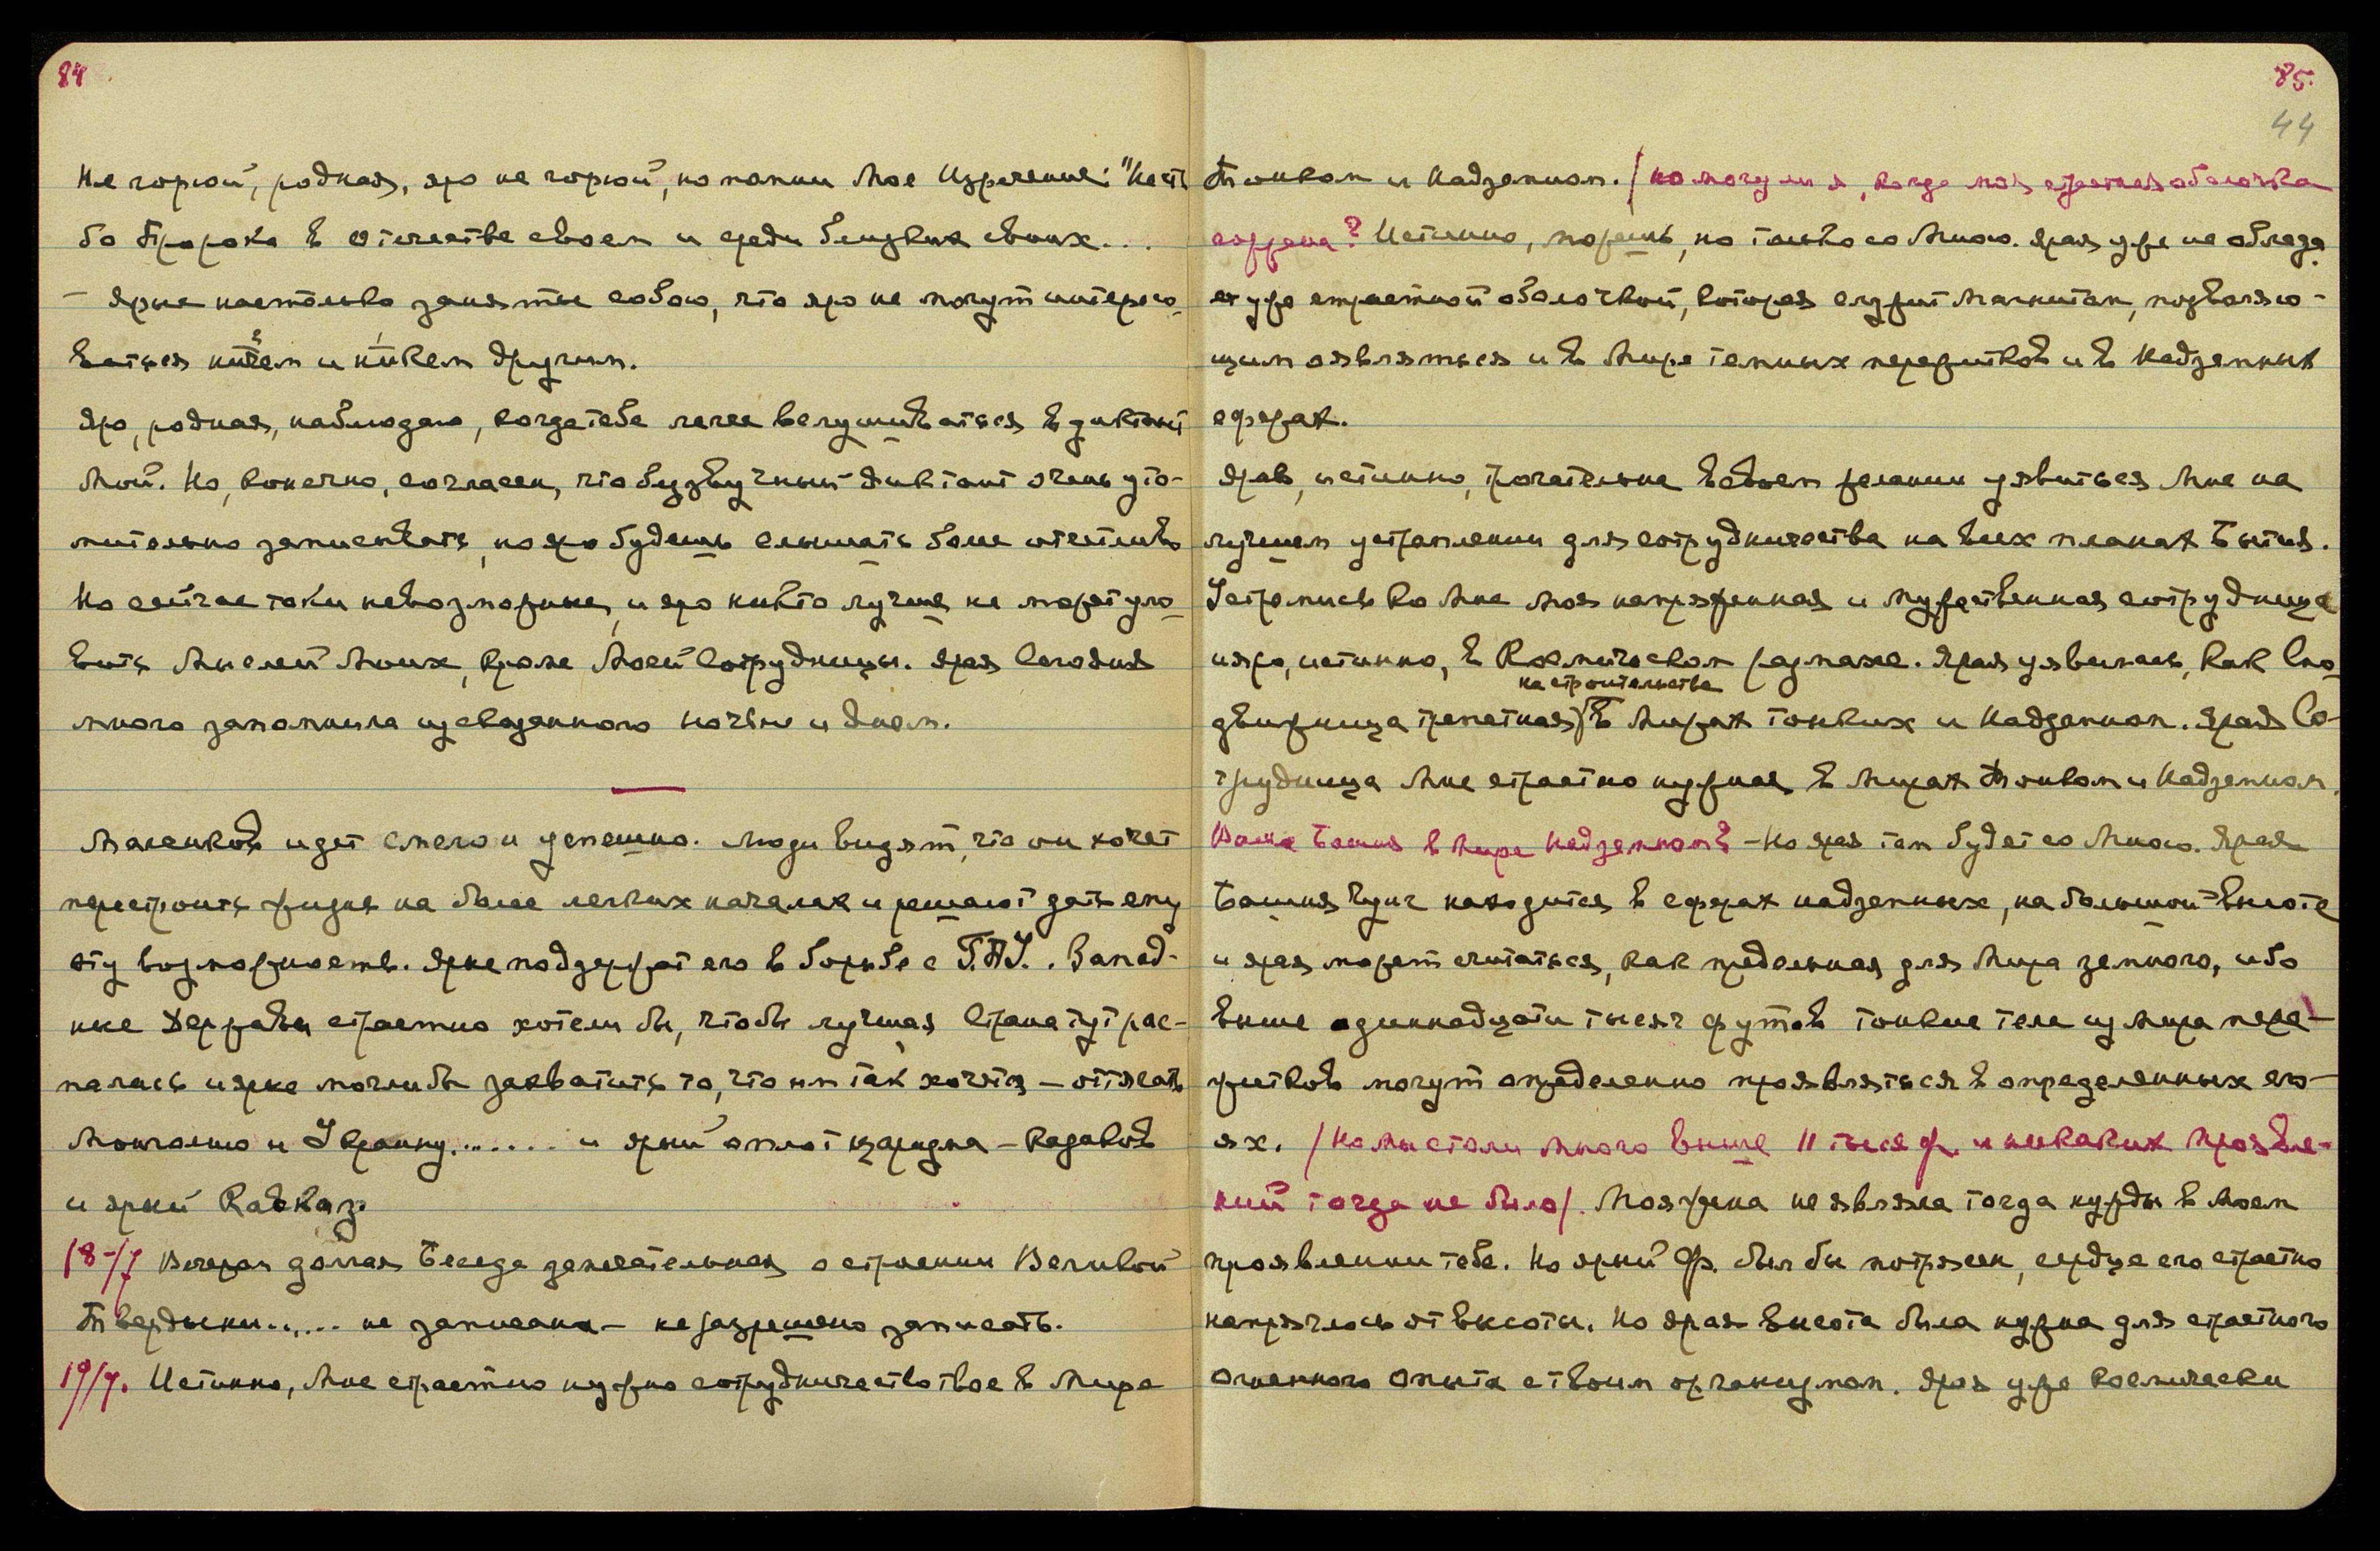 84
Не горюй, родная, яро не горюй, но помни Мое Изречение: "Несть
бо Пророка в отечестве своем и среди близких своих...
– Ярые настолько заняты собою, что яро не могут интересо-
ваться ничем и никем другим.
Яро, родная, наблюдаю, когда тебе легче вслушиваться в диктант
Мой. Но, конечно, согласен, что беззвучный диктант очень уто-
мительно записывать, но яро будешь слышать более отчетливо
Но сейчас таки невозможные, и яро никто лучше не может уло-
вить Мыслей Моих, кроме Моей Сотрудницы. Ярая Сегодня
много запомнила из сказанного ночью и днем.
Маленков идет смело и успешно. Люди видят, что он хочет
перестроить жизнь на более легких началах и решают дать ему
эту возможность. Ярые поддержат его в борьбе с Г.П.У.. Запад-
ные Державы страстно хотели бы, чтобы лучшая Страна тут рас-
палась и ярые могли бы захватить то, что им так хочется – оттягать
Монголию и Украину....... и ярый оплот царизма – казаков
и ярый Кавказ.
18-/7 Вечером долгая Беседа замечательная о строении Великой
Твердыни...... не записана – не разрешено записать.
19/7. Истинно, Мне страстно нужно сотрудничество твое в Мире
85.
44
Тонком и Надземном. /Но могу ли я, когда моя страстная оболочка
сожжена? Истинно, можешь, но только со Мною. Ярая уже не облада-
ет уже страстной оболочкой, которая служит магнитом, позволяю-
щим оявляться и в Мире темных пережитков и в Надземных
сферах.
Ярая, истинно, трогательна в своем желании уявиться Мне на
лучшем устремлении для сотрудничества на всех планах Бытия.
Устремись ко Мне моя напряженная и мужественная сотрудница
и яро, истинно, в Космическом размахе. Ярая уявилась, как Спо-
на строительства
движница трепетная в Мирах тонких и Надземном. Ярая Со-
трудница Мне страстно нужная в Мирах Тонком и Надземном.
Ваша Башня в Мире Надземном? – Но ярая там будет со Мною. Ярая
Башня Чунг находится в сферах надземных, на большой высоте
и ярая может считаться, как предельная для Мира земного, ибо
выше одиннадцати тысяч футов тонкие тела из Мира пере-
житков могут определенно проявляться в определенных сло-
ях. /Но мы стояли много выше 11 тыся ф. и никаких проявле-
ний тогда не было/. Моя жена не являла тогда нужды в Моем
проявлении тебе. Но ярый Ф. был бы потрясен, сердце его страстно
напряглось от высоты. Но ярая высота была нужна для страстного
Огненного Опыта с твоим организмом. Ярая уже космически